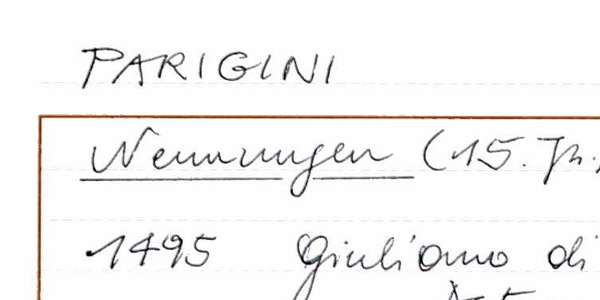 PARIGINI
Nennungen (15. Jh.
1495 Giuliano di